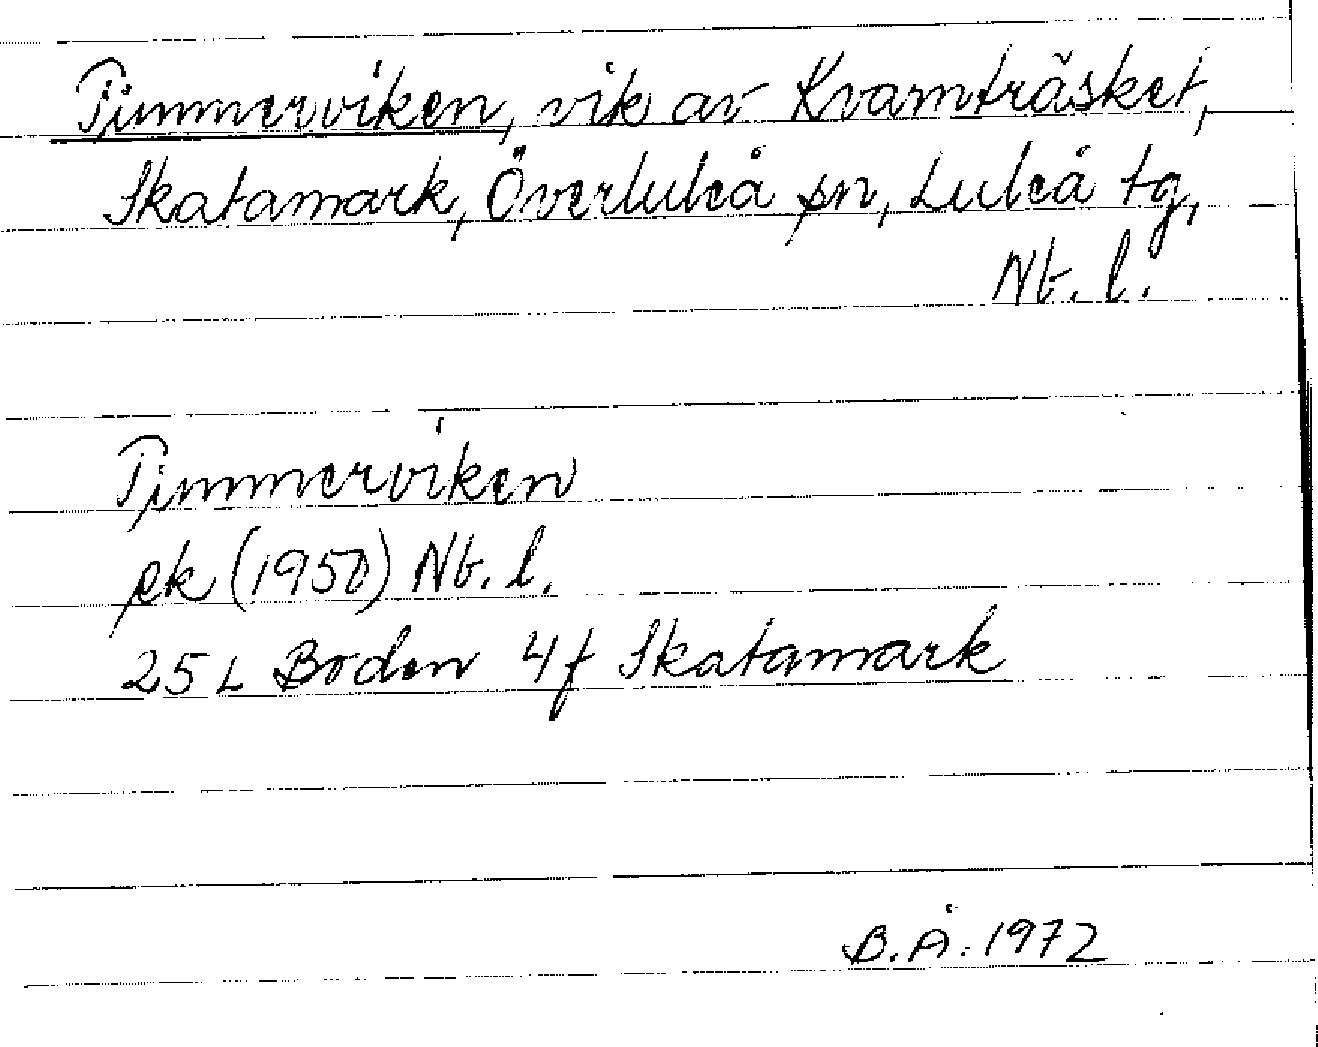 Timmerviken, vik av Kvarnträsket,
Skatamark, Överluleå sn, Luleå tg,
Nb. l.
Timmerviken
ek (1950) Nb. l.
25 L Boden 4f Skatamark
B.Å. 1972